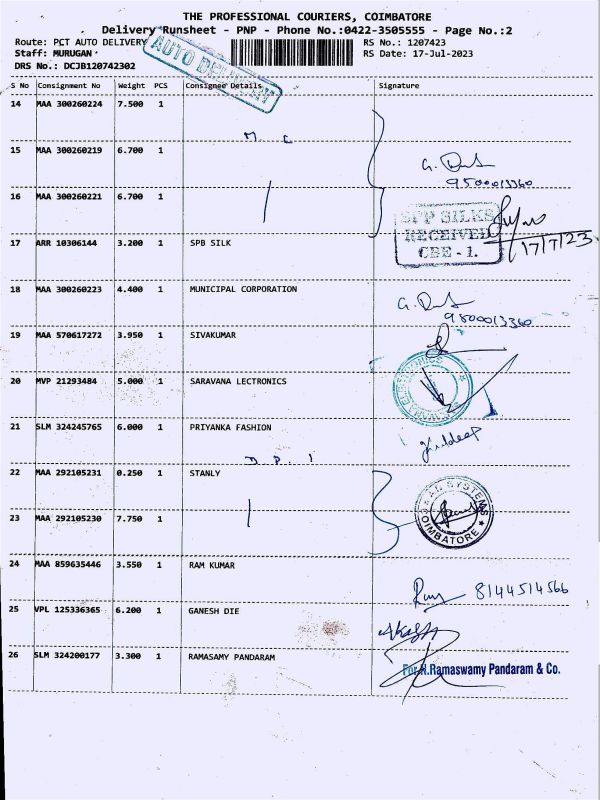 THE PROFESSIONAL COURIERS, COIMBATORE
Delivery Runsheet - PNP - Phone No.:0422-3505555 - Page No.:2
Route: PCT AUTO DELIVERY
RS No.: 1207423
Staff: MURUGAN
RS Date: 17-Jul-2023
DRS No.: DCJB120742302
AUTO DELIVERY
S No Consignment No Weight PCS Consignee Details Signature
14 MAA 300260224 7.500 1
M C
15 MAA 300260219 6.700 1
9500013360
16 MAA 300260221 6.700 1
SPP SILKS
RECEIVED
CBE - 1.
17/7/23
17 ARR 10306144 3.200 1 SPB SILK
18 MAA 300260223 4.400 1 MUNICIPAL CORPORATION
9500013360
19 MAA 570617272 3.950 1 SIVAKUMAR
20 MVP 21293484 5.000 1 SARAVANA LECTRONICS
21 SLM 324245765 6.000 1 PRIYANKA FASHION
22 MAA 292105231 0.250 1 STANLY
SYSTEMS
COIMBATORE
23 MAA 292105230 7.750 1
24 MAA 859635446 3.550 1 RAM KUMAR
8144514566
25 VPL 125336365 6.200 1 GANESH DIE
26 SLM 324200177 3.300 1 RAMASAMY PANDARAM
For N.Ramaswamy Pandaram & Co.